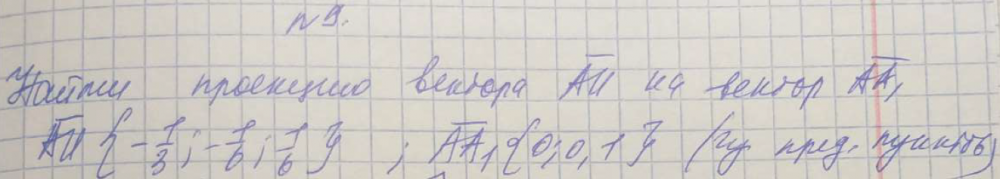 №9.
Найти проекцию вектора AM на вектор AA₁
AM {-1/3; -1/6; 1/6} ; AA₁ {0; 0, 1} (из пред. пунктов)